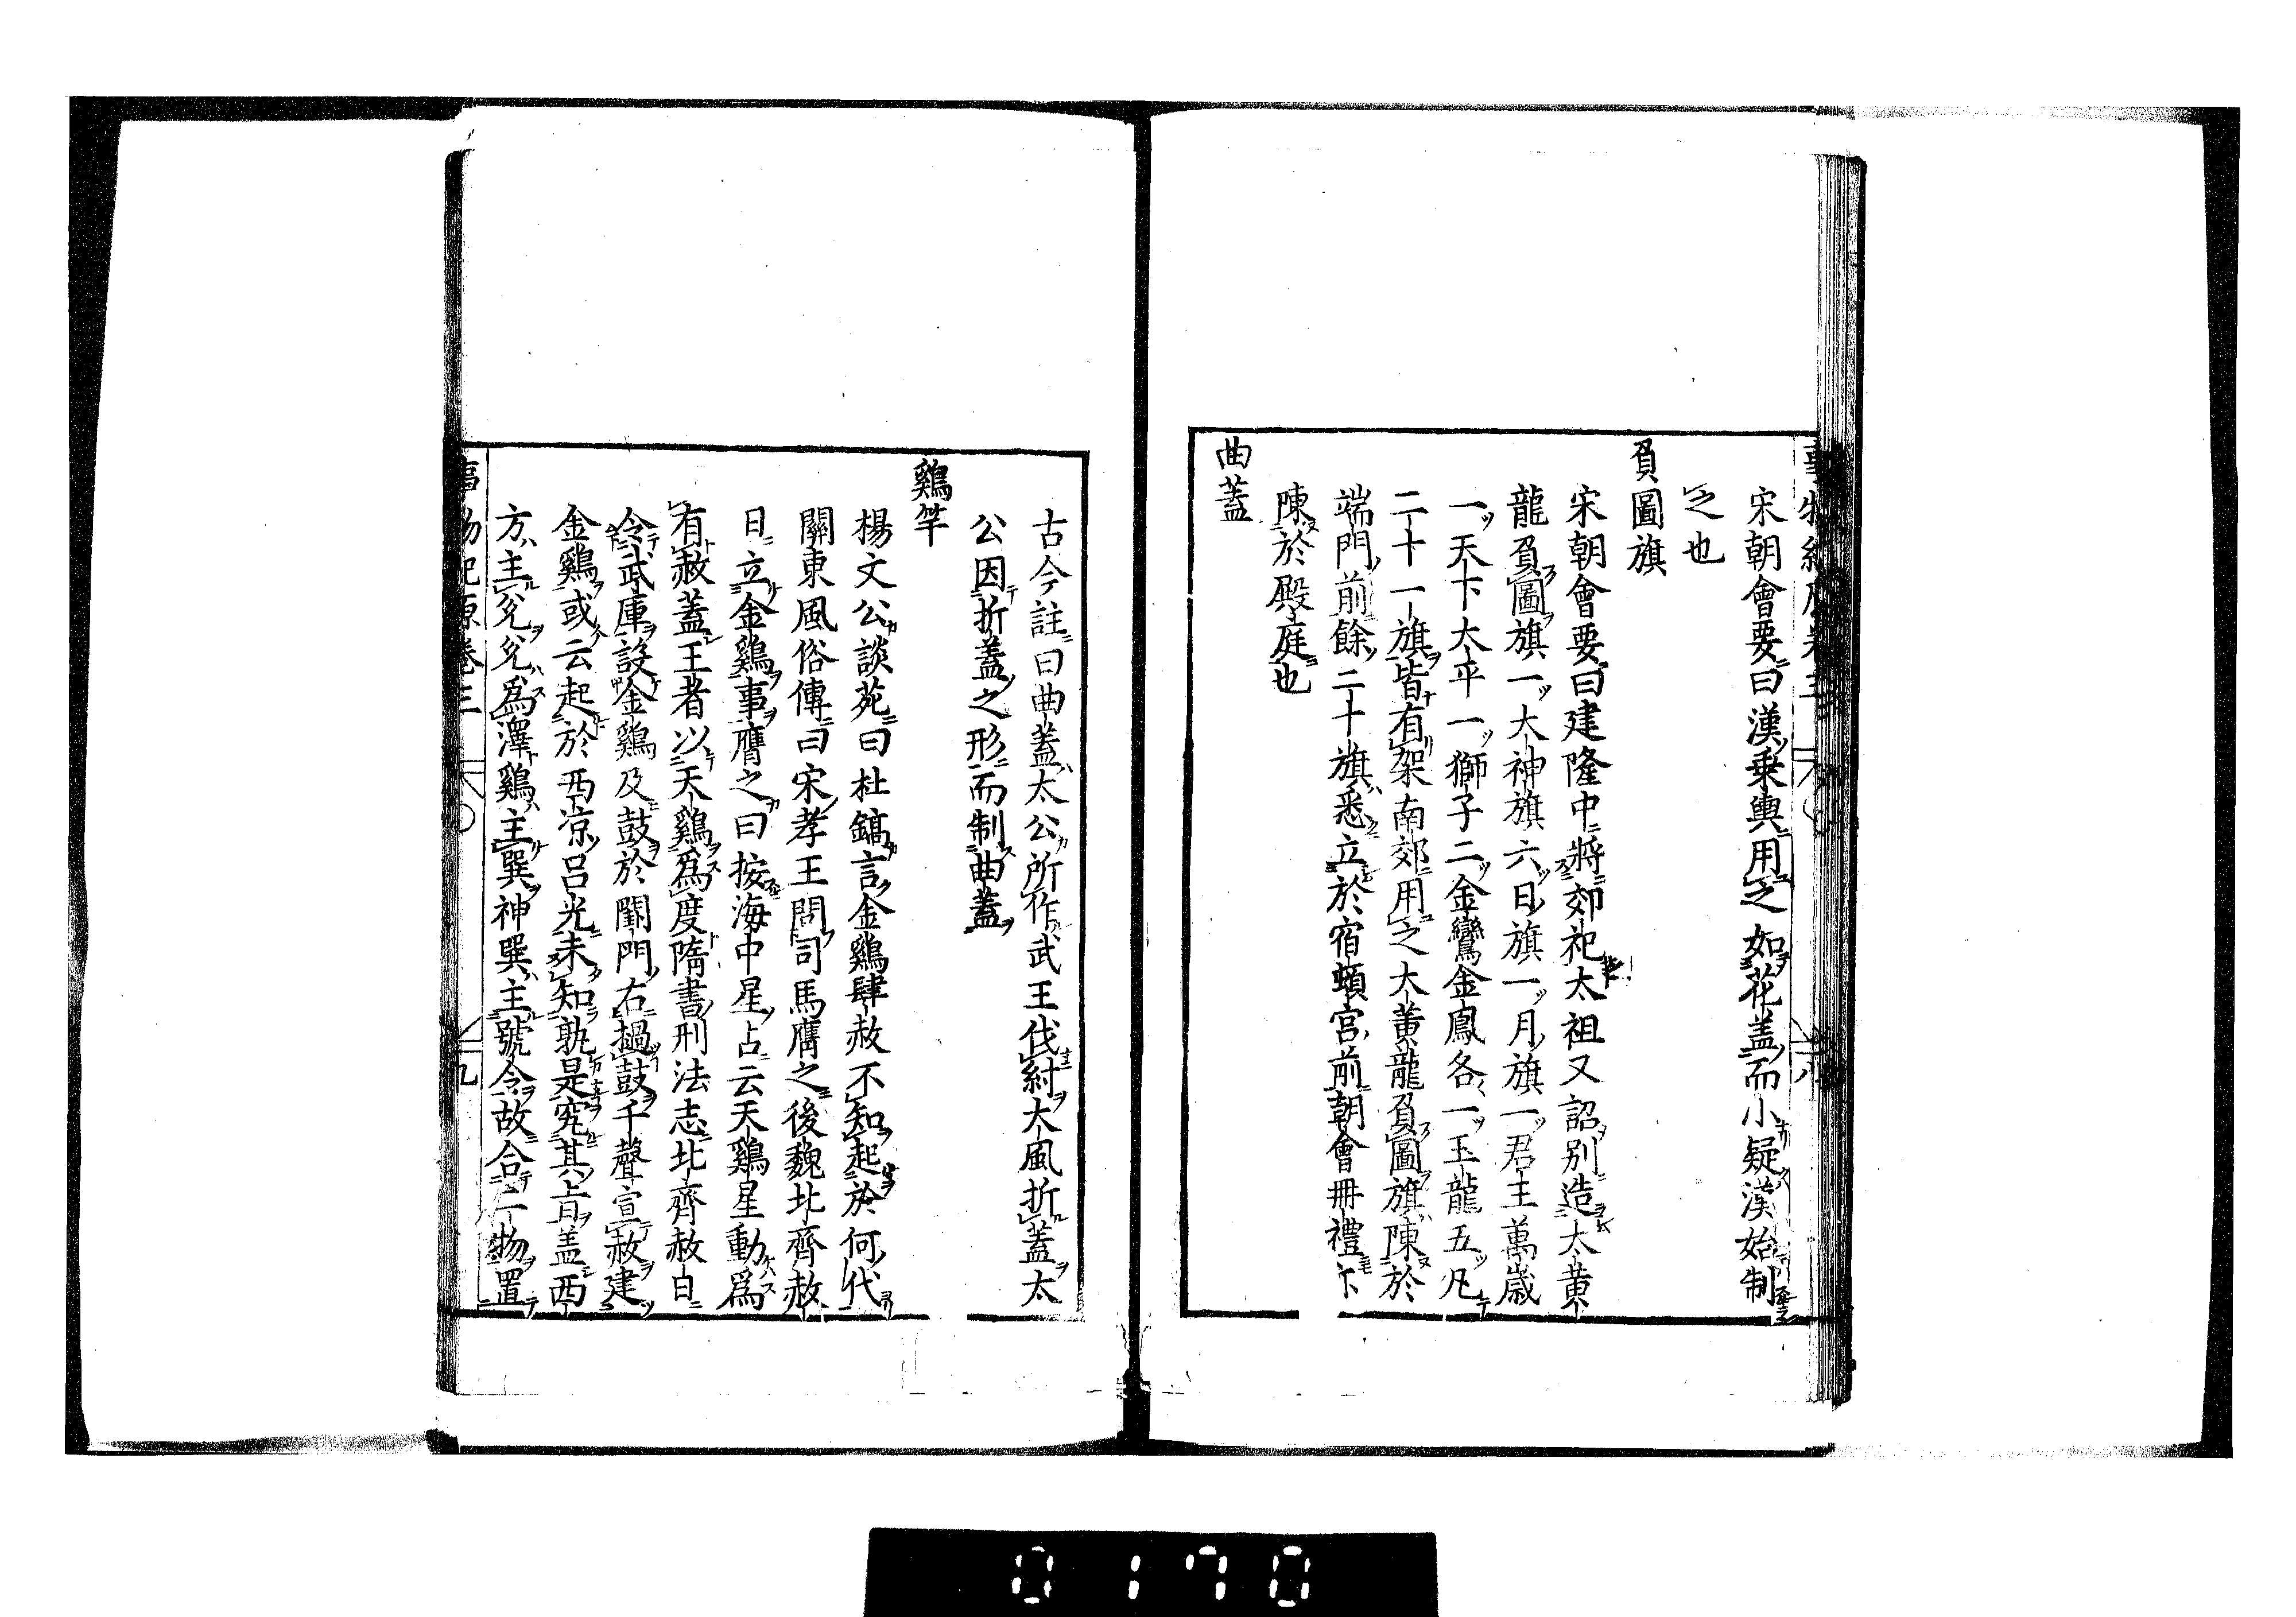 宋朝會要曰漢乗輿用之如花盖而小疑漢始制
之也
負圖旗
宋朝會要曰建隆中將郊祀太祖又詔别造大黄
龍負圖旗一大神旗六日旗一月旗一君王萬歲
一天下太平一獅子二金鸞金鳳各一玉龍五凡
二十一旗皆有架南郊用之大黄龍負圖旗陳於
端門前餘二十旗悉立於宿頓宮前朝會冊禮亦
陳於殿庭也
曲蓋
古今註曰曲蓋太公所作武王伐紂大風折蓋太
公因折蓋之形而制曲蓋
鷄竿
楊文公談苑曰杜鎬言金鷄肆赦不知起於何代
關東風俗傳曰宋孝王問司馬膺之後魏北齊赦
日立金鷄事膺之曰按海中星占云天鷄星動爲
有赦蓋王者以天鷄爲度隋書刑法志北齊赦日
令武庫設金鷄及鼓於閶門右撾鼓千聲宣赦建
金鷄或云起於西凉吕光未知孰是究其旨盖西
方主兊兊爲澤鷄主巽神巽主號令故合二物置
事物紀原卷三
九
0170